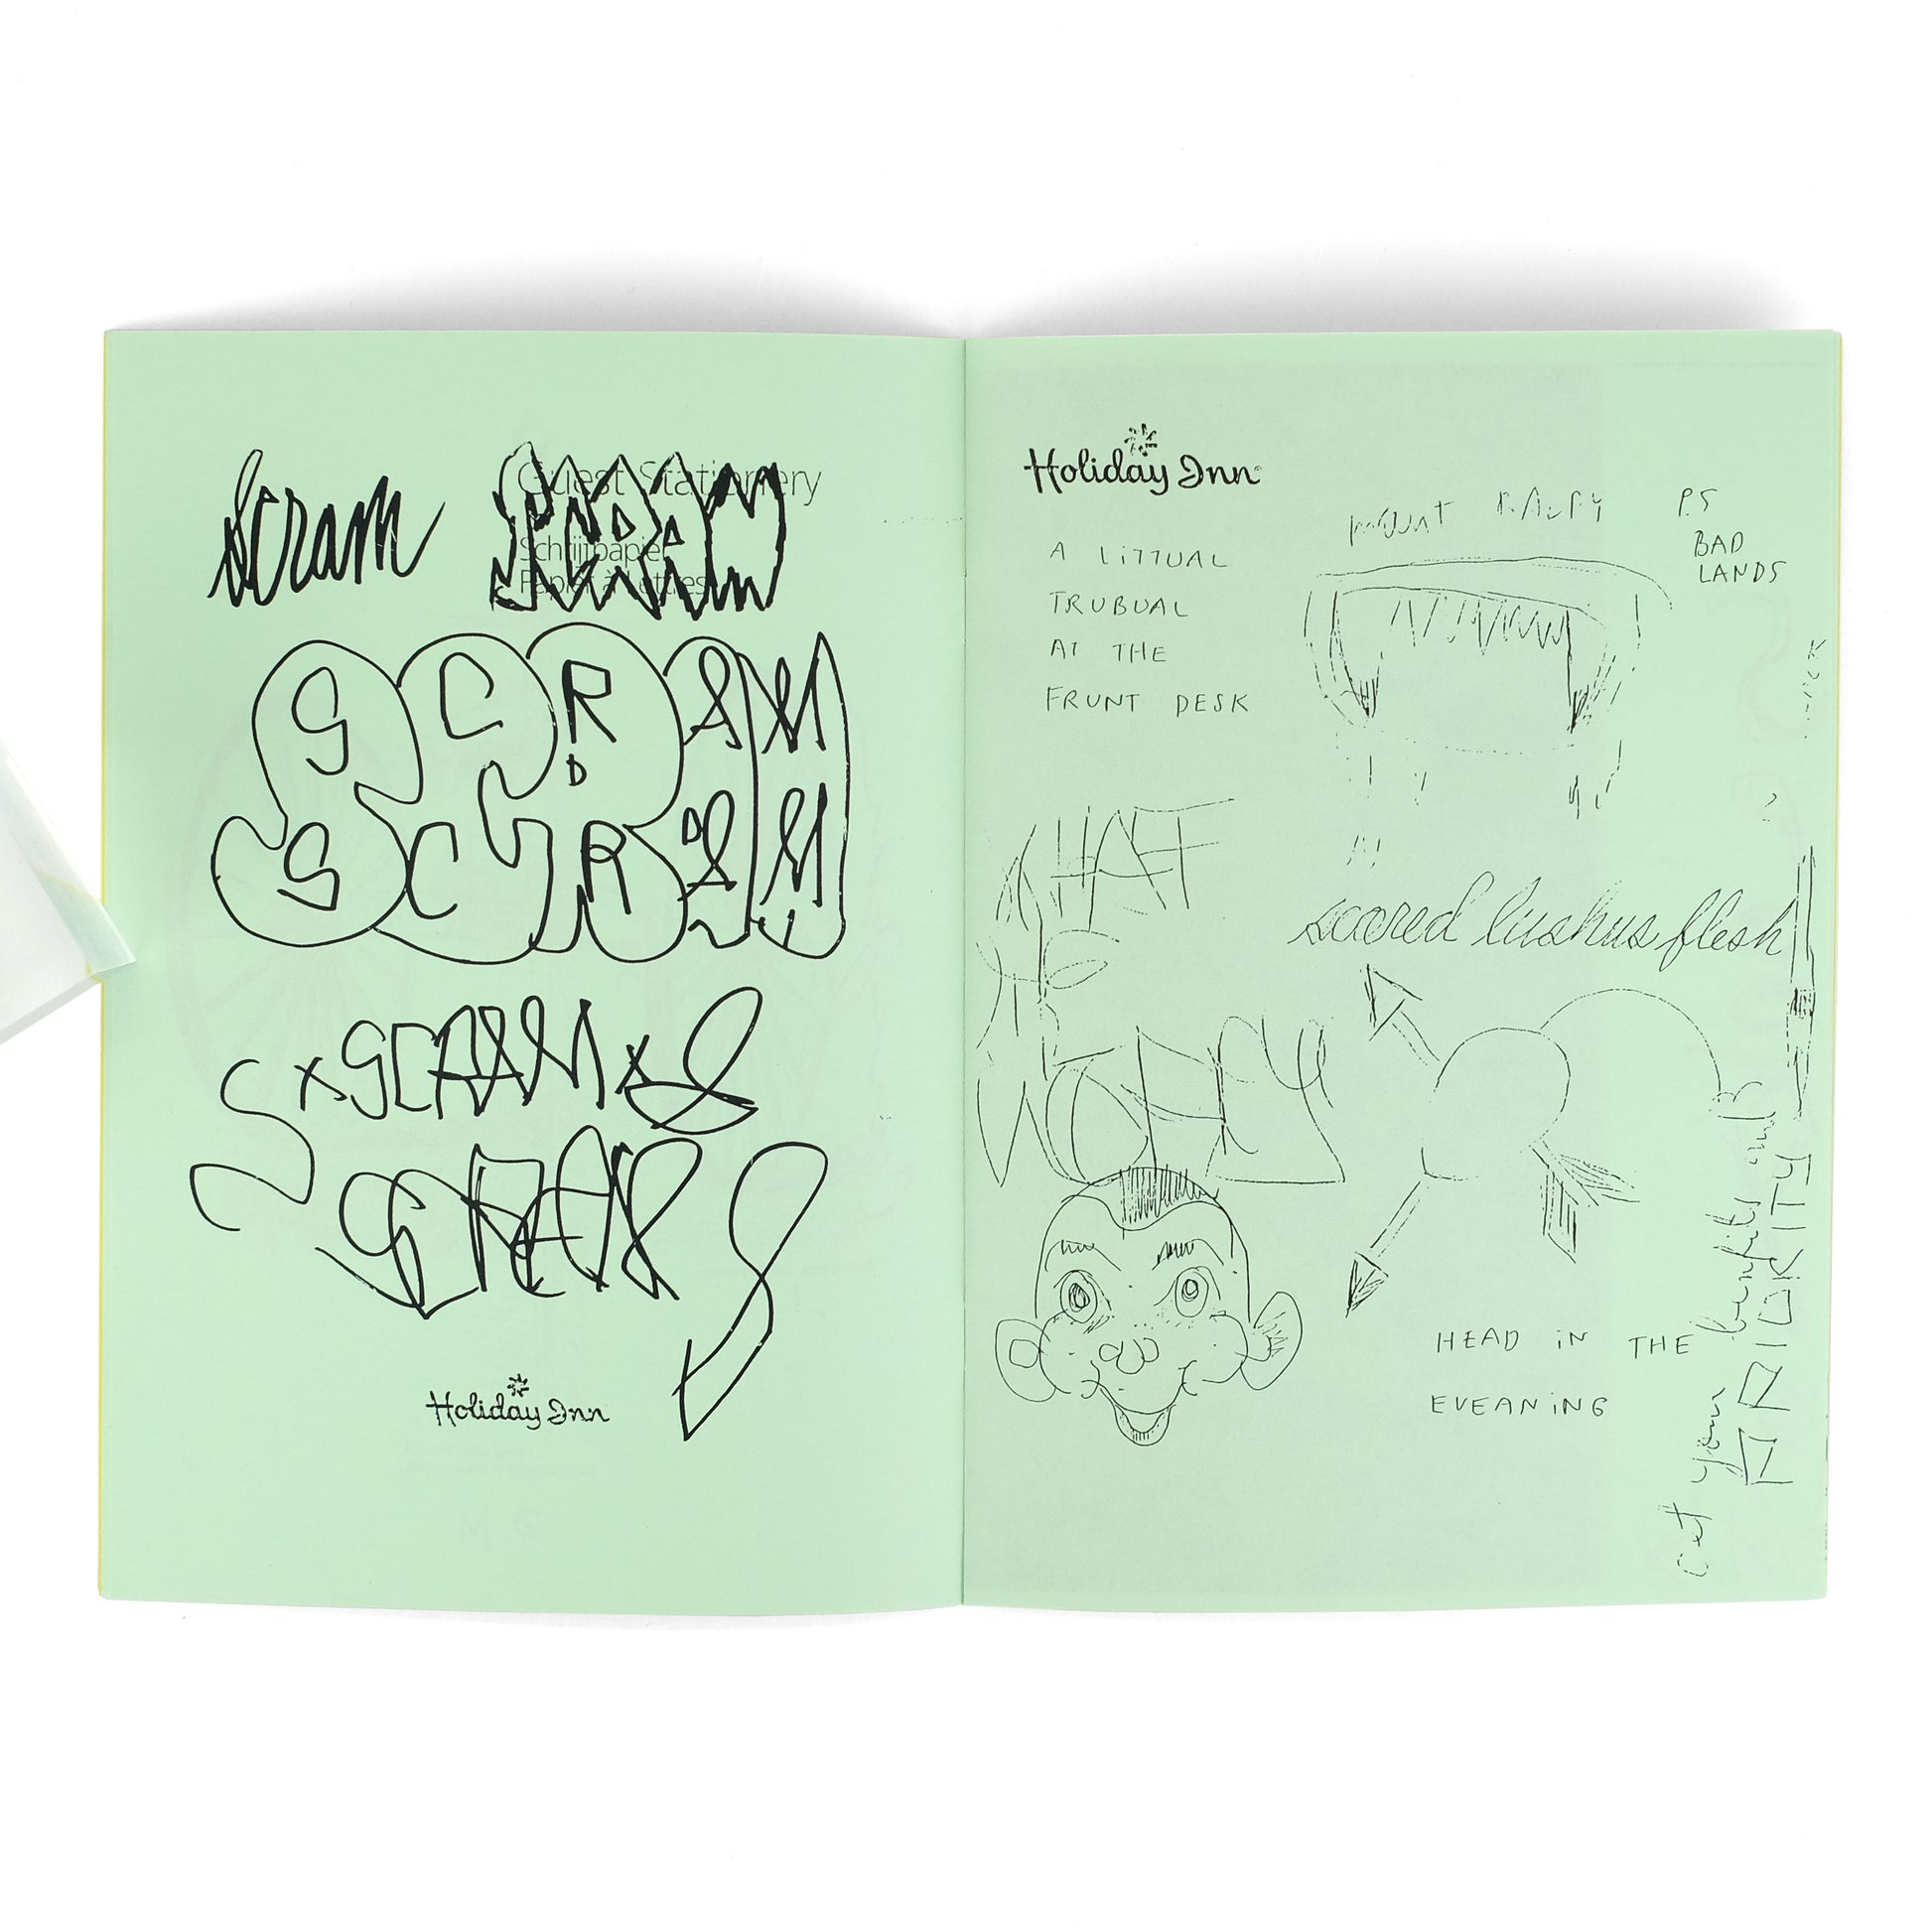 Scram SCRAM
Guest Stationery
Schrijfpapier
Papier à Lettres
SCRAM
D
SCRAM
S x SCRAM x S
Holiday Inn
Holiday Inn
A LiTTUAL
TRUBUAL
AT THE
FRUNT DESK
MOUNT
P.S
BAD
LANDS
WHAT
scared lushus flesh
HEAD iN THE
EVEANiNG
Get your
PRIORITY